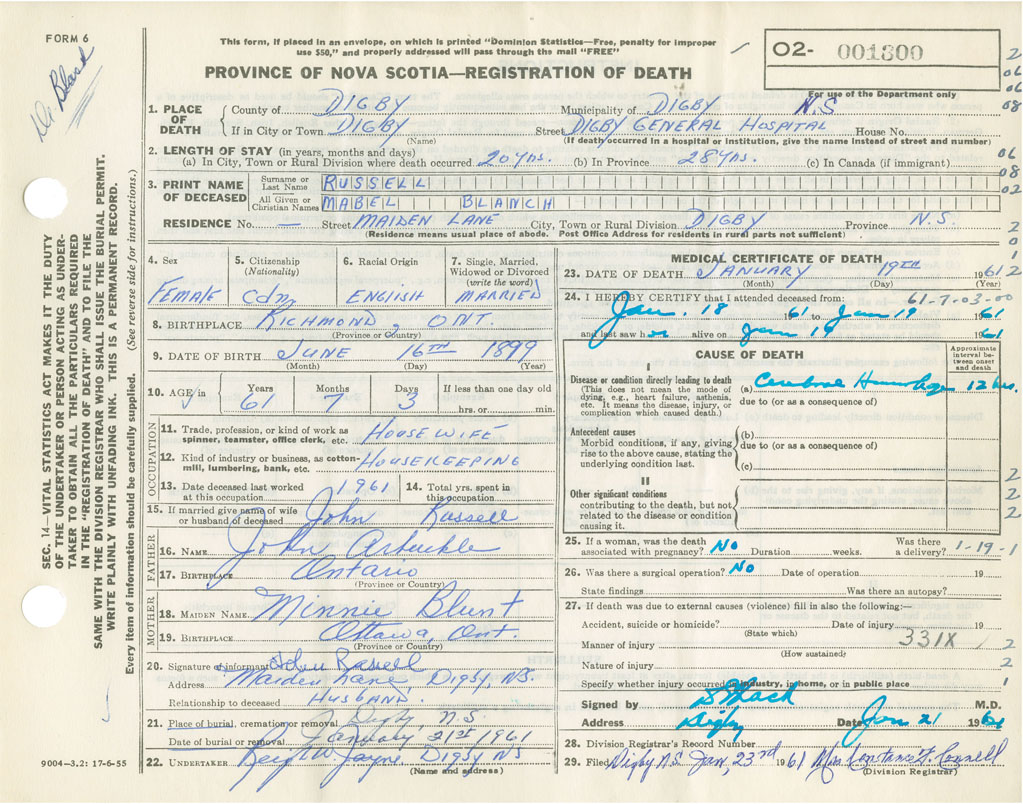 FORM 6
Dr Black
This form, if placed in an envelope, on which is printed "Dominion Statistics—Free, penalty for improper
use $50," and properly addressed will pass through the mail "FREE"
02- 001300
For use of the Department only
PROVINCE OF NOVA SCOTIA—REGISTRATION OF DEATH
1. PLACE OF DEATH County of DIGBY Municipality of DIGBY N.S
If in City or Town DIGBY Street DIGBY GENERAL HOSPITAL House No.
(Name) (If death occurred in a hospital or institution, give the name instead of street and number)
2. LENGTH OF STAY (in years, months and days)
(a) In City, Town or Rural Division where death occurred 20 yrs. (b) In Province 28 yrs. (c) In Canada (if immigrant)
3. PRINT NAME OF DECEASED Surname or Last Name RUSSELL
All Given or Christian Names MABEL BLANCH
RESIDENCE No. — Street MAIDEN LANE City, Town or Rural Division DIGBY Province N.S.
(Residence means usual place of abode. Post Office Address for residents in rural parts not sufficient)
4. Sex 5. Citizenship (Nationality) 6. Racial Origin 7. Single, Married, Widowed or Divorced (write the word)
FEMALE cdn ENGLISH MARRIED
8. BIRTHPLACE RICHMOND, ONT.
(Province or Country)
9. DATE OF BIRTH JUNE 16TH 1899
(Month) (Day) (Year)
10. AGE in Years Months Days If less than one day old
61 7 3 hrs. or min.
OCCUPATION
11. Trade, profession, or kind of work as spinner, teamster, office clerk, etc. HOUSEWIFE
12. Kind of industry or business, as cotton-mill, lumbering, bank, etc. HOUSEKEEPING
13. Date deceased last worked at this occupation 1961 14. Total yrs. spent in this occupation
15. If married give name of wife or husband of deceased John Russell
FATHER
16. NAME John Arbuckle
17. BIRTHPLACE Ontario
(Province or Country)
MOTHER
18. MAIDEN NAME Minnie Blunt
19. BIRTHPLACE Ottawa, Ont.
(Province or Country)
20. Signature of informant John Russell
Address Maiden Lane, Digby, NS.
Relationship to deceased HUSBAND
21. Place of burial, cremation or removal Digby, N.S.
Date of burial or removal January 21st 1961
22. UNDERTAKER Jayne Digby NS
(Name and address)
9004—3.2: 17-6-55
MEDICAL CERTIFICATE OF DEATH
23. DATE OF DEATH JANUARY 19TH 1961
(Month) (Day) (Year)
24. I HEREBY CERTIFY that I attended deceased from: 61-7-03-00
Jan. 18 1961 to Jan 19 1961
and last saw h er alive on Jan 19 1961
CAUSE OF DEATH
Approximate interval between onset and death
I
Disease or condition directly leading to death (a) Cerebral Hemorrhage 12 hrs.
(This does not mean the mode of dying, e.g., heart failure, asthenia, etc. It means the disease, injury, or complication which caused death.) due to (or as a consequence of)
Antecedent causes (b)
Morbid conditions, if any, giving rise to the above cause, stating the underlying condition last. due to (or as a consequence of)
(c)
II
Other significant conditions
contributing to the death, but not related to the disease or condition causing it.
25. If a woman, was the death associated with pregnancy? No Duration weeks. Was there a delivery? 1-19-1
26. Was there a surgical operation? No Date of operation 19
State findings Was there an autopsy?
27. If death was due to external causes (violence) fill in also the following:—
Accident, suicide or homicide? Date of injury 19
(State which)
Manner of injury 331X
(How sustained)
Nature of injury
Specify whether injury occurred in industry, in home, or in public place
Signed by Black M.D.
Address Digby Date Jan 21 1961
28. Division Registrar's Record Number
29. Filed Digby N.S. Jan. 23rd 1961 Miss Constance F. Connell
(Division Registrar)
SEC. 14—VITAL STATISTICS ACT MAKES IT THE DUTY
OF THE UNDERTAKER OR PERSON ACTING AS UNDER-
TAKER TO OBTAIN ALL THE PARTICULARS REQUIRED
IN THE "REGISTRATION OF DEATH" AND TO FILE THE
SAME WITH THE DIVISION REGISTRAR WHO SHALL ISSUE THE BURIAL PERMIT.
WRITE PLAINLY WITH UNFADING INK. THIS IS A PERMANENT RECORD.
Every item of information should be carefully supplied. (See reverse side for instructions.)
2
06
06
08
06
08
02
2
0
1
2
2
2
2
2
2
1
2